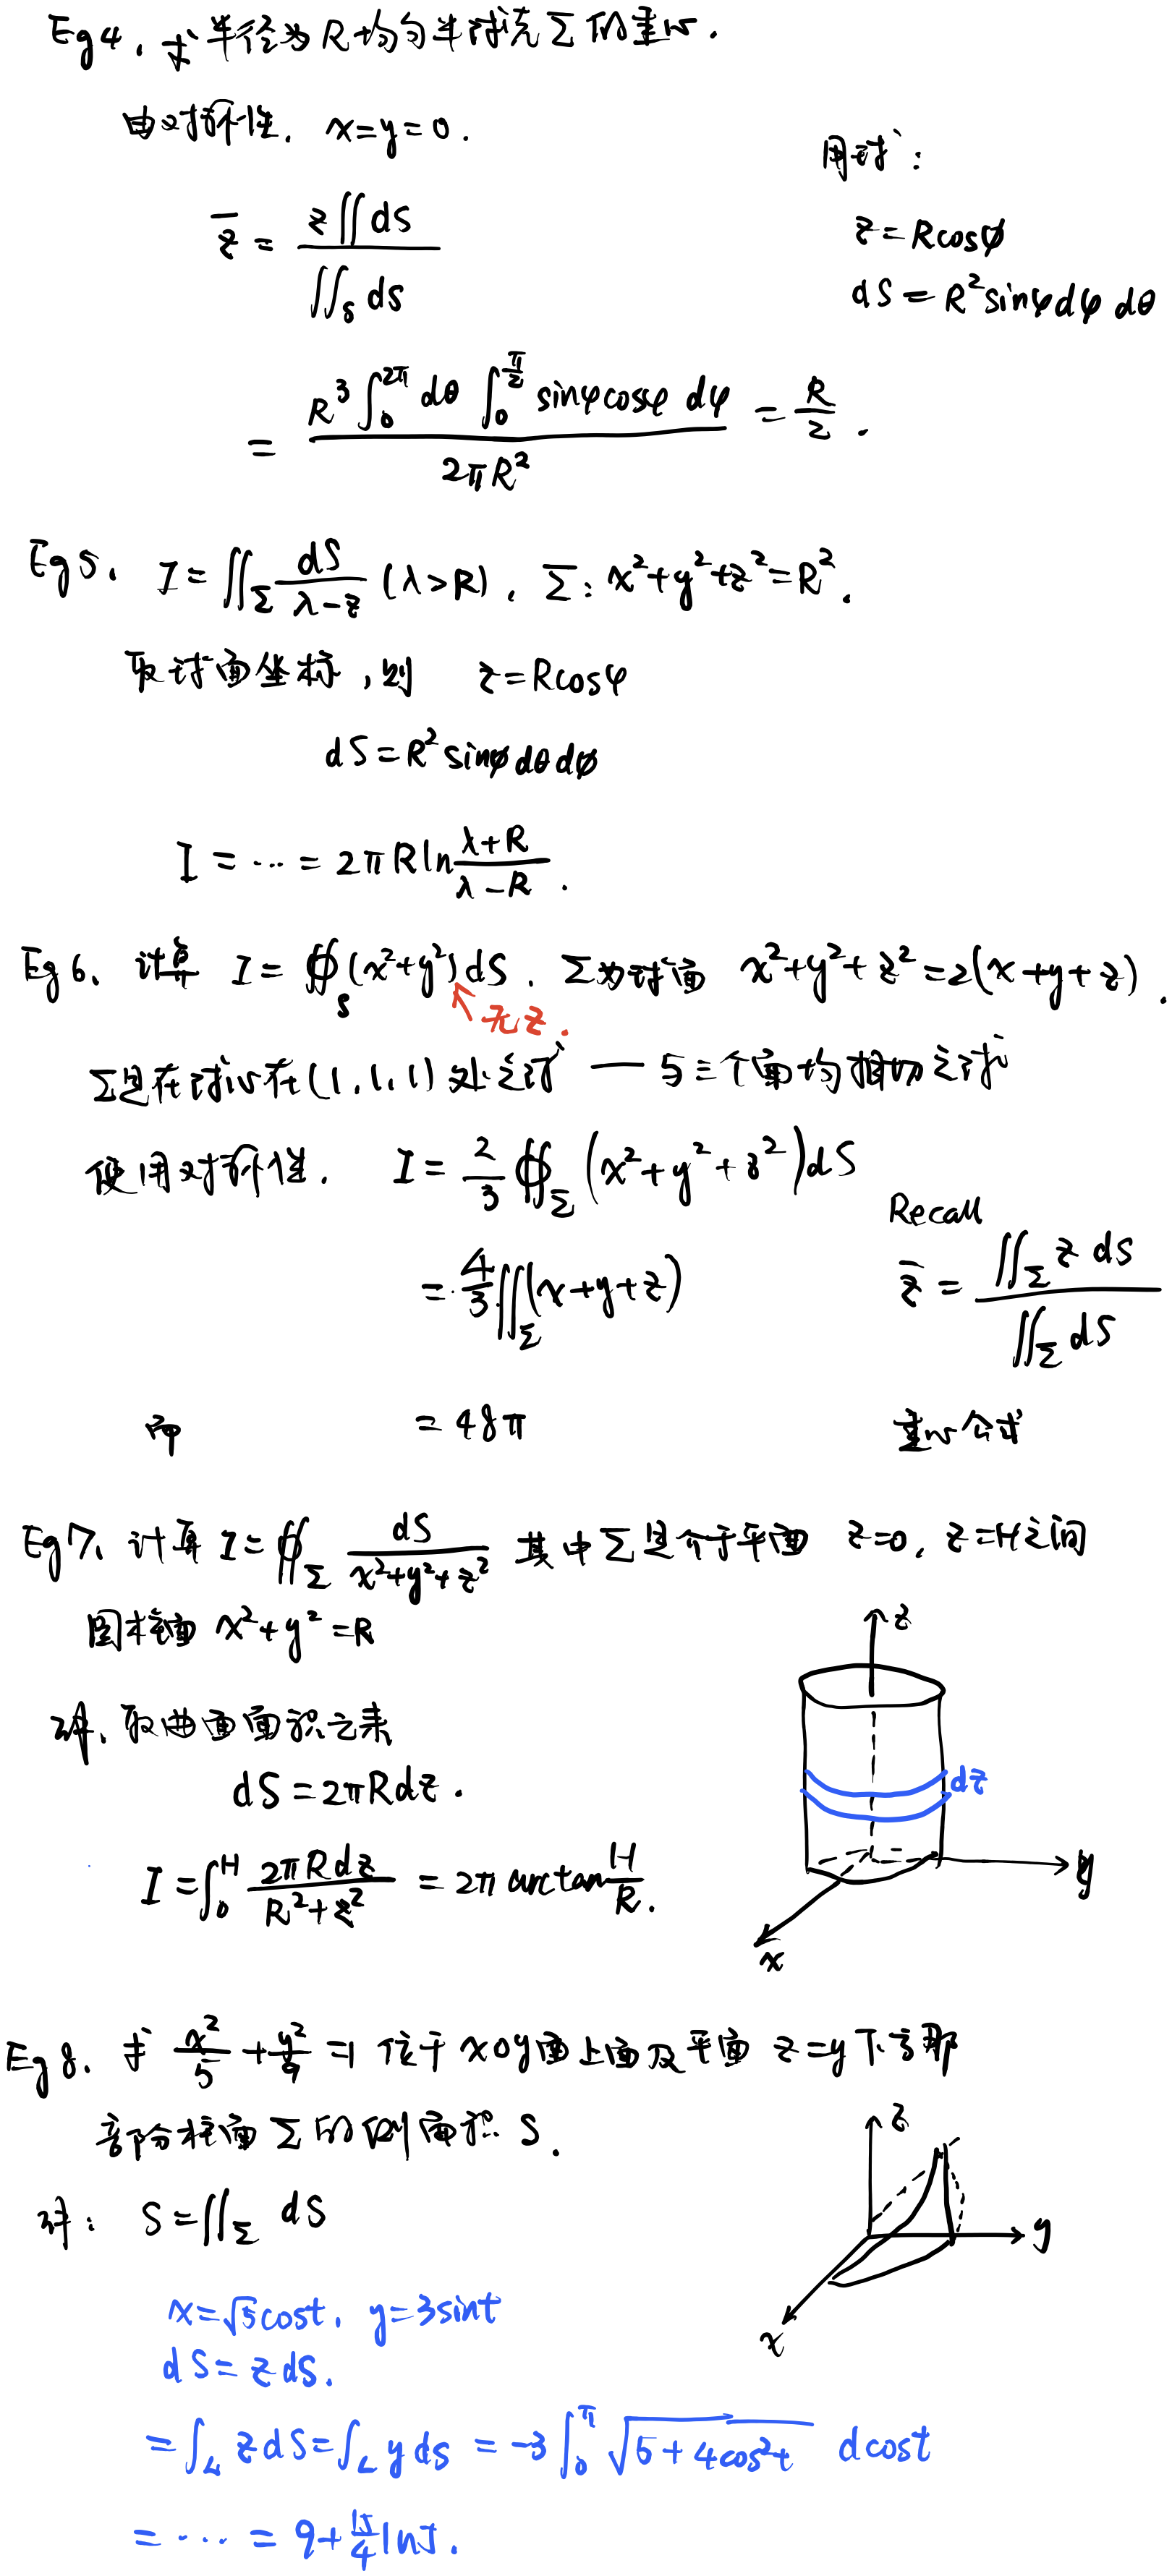 Eg 4. 求半径为 R 均匀半球壳 Σ 的重心.
由对称性. x=y=0.
用球:
z̄ = z∬ dS / ∬_S dS
z=Rcosφ
dS = R² sinφ dφ dθ
= R³ ∫₀^{2π} dθ ∫₀^{π/2} sinφ cosφ dφ / 2πR² = R/2 .
Eg 5. I = ∬_Σ dS/(λ-z) (λ>R), Σ: x²+y²+z²=R².
取球面坐标, 则 z=Rcosφ
dS=R² sinφ dθ dφ
I = ⋯ = 2πR ln (λ+R)/(λ-R) .
Eg 6. 计算 I = ∯_S (x²+y²) dS. Σ为球面 x²+y²+z²=2(x+y+z).
↖ 无z.
Σ是在球心在(1,1,1)处之球 — 与三个面均相切之球
使用对称性. I = 2/3 ∯_Σ (x²+y²+z²) dS
Recall
= 4/3 ∬_Σ (x+y+z)
z̄ = ∬_Σ z dS / ∬_Σ dS
= 48π
重心公式
Eg 7. 计算 I = ∯_Σ dS/(x²+y²+z²) 其中Σ是介于平面 z=0, z=H之间
圆柱面 x²+y²=R
z
解. 取曲面面积元素
dS = 2πR dz .
dz
I = ∫₀^H 2πR dz/(R²+z²) = 2π arctan H/R .
y
x
Eg 8. 求 x²/5 + y²/9 =1 位于 xoy面上面及平面 z=y 下方那
部分柱面 Σ 的侧面积 S.
z
解: S=∬_Σ dS
y
x=√5 cost, y=3sint
x
dS = z ds.
= ∫_L z dS = ∫_L y ds = -3 ∫₀^π √(5+4cos²t) dcost
= ⋯ = 9 + 15/4 ln5 .